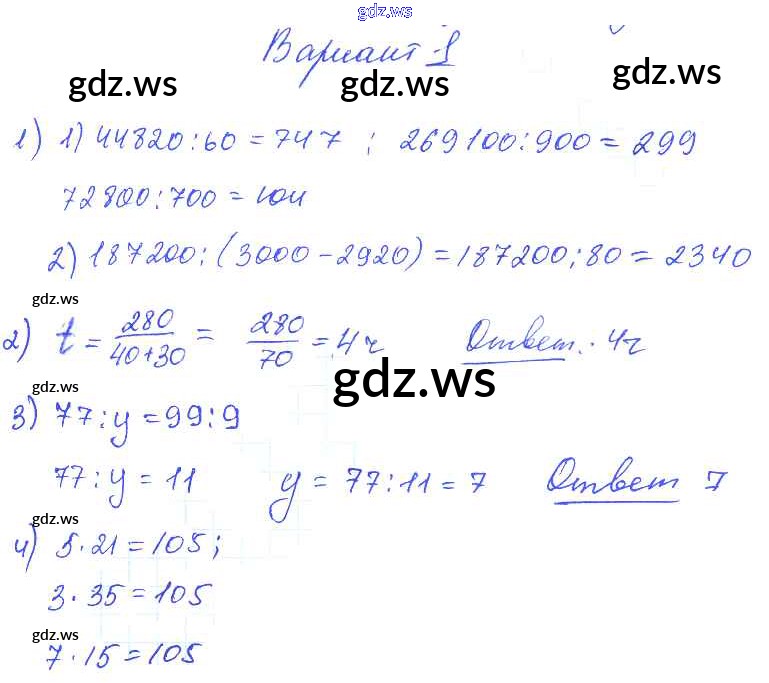 gdz.ws
Вариант 1
gdz.ws gdz.ws gdz.ws
1) 1) 44820:60=747 ; 269100:900=299
72800:700=104
2) 187200:(3000-2920)=187200:80=2340
gdz.ws
2) t = 280/40+30 = 280/70 = 4ч Ответ. 4ч
gdz.ws
gdz.ws
3) 77:y=99:9
77:y=11 y=77:11=7 Ответ 7
gdz.ws
4) 5·21=105;
3·35=105
gdz.ws
7·15=105